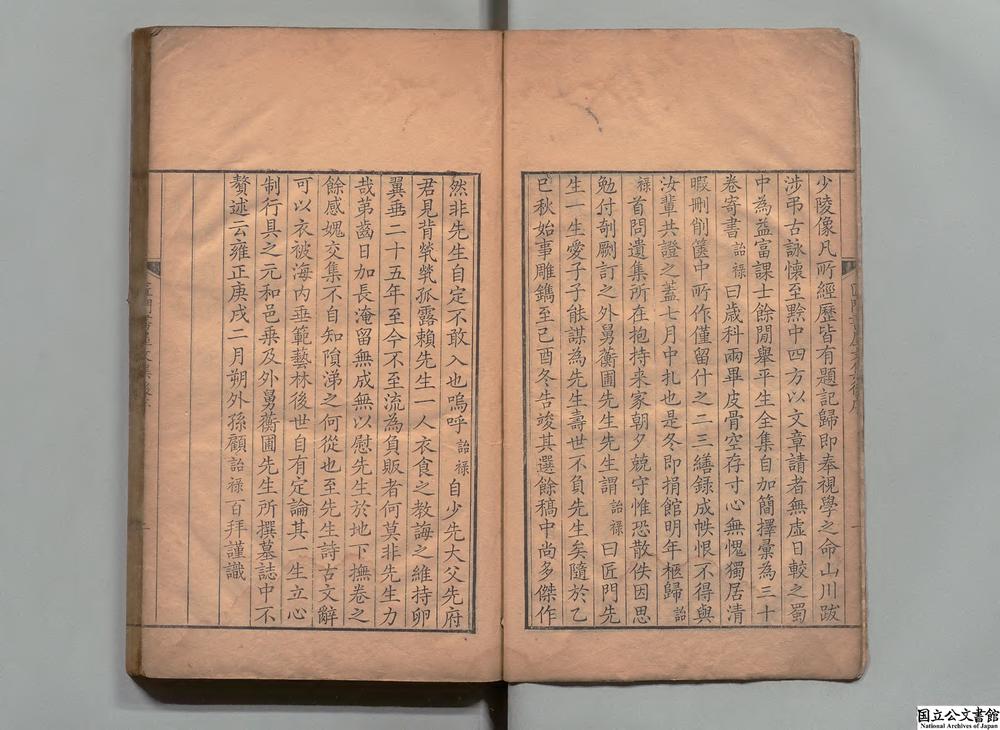 少陵像凡所經歷皆有題記歸即奉視學之命山川跋
涉弔古詠懷至黔中四方以文章請者無虛日較之蜀
中為益富課士餘閒舉平生全集自加簡擇彙為三十
卷寄書詒祿曰歲科兩畢皮骨空存寸心無愧獨居清
暇刪削篋中所作僅留什之二三繕錄成帙恨不得與
汝輩共證之蓋七月中札也是冬即捐館明年柩歸詒
祿首問遺集所在抱持来家朝夕兢守惟恐散佚因思
勉付剞劂訂之外舅蘅圃先生先生謂詒祿曰匠門先
生一生愛子子能謀為先生壽世不負先生矣隨於乙
巳秋始事雕鐫至己酉冬告竣其選餘稿中尚多傑作
然非先生自定不敢入也嗚呼詒祿自少先大父先府
君見背煢煢孤露賴先生一人衣食之教誨之維持卵
翼垂二十五年至今不至流為負販者何莫非先生力
哉苐齒日加長淹留無成無以慰先生於地下撫卷之
餘感愧交集不自知隕涕之何從也至先生詩古文辭
可以衣被海內垂範藝林後世自有定論其一生立心
制行具之元和邑乘及外舅蘅圃先生所撰墓誌中不
贅述云雍正庚戌二月朔外孫顧詒祿百拜謹識
国立公文書館
National Archives of Japan